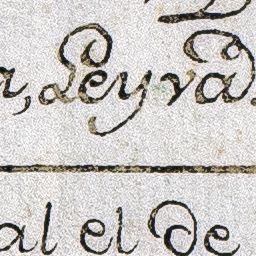 a, Leyva
al el de